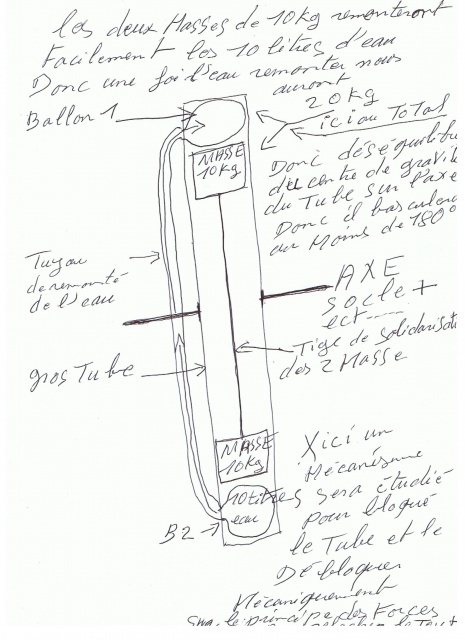 les deux Masses de 10kg remonteront
Facilement les 10 litres d'eau
Donc une foi l'eau remonter nous
auront
20KG
ici au ToTal
Ballon 1
MASSE
10Kg
Donc déséquilib
du centre de gravit
du Tube sur l'axe
Donc il bascule
au Moins de 180°
Tuyau
de remonté
de l'eau
AXE
socle +
ect----
Tige de solidaris
des 2 Masse
gros Tube
MASSE
10Kg
X ici un
Mécanésme
sera étudié
pour bloqué
le Tube et le
DÉbloquer
Mécaniquement
10 litres
eau
B2
le principe des Forces